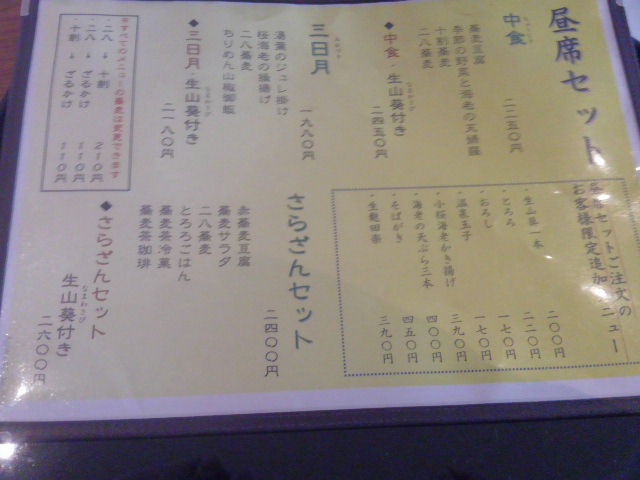 昼席セット
中食
二二五〇円
蕎麦豆腐
季節の野菜と海老の天婦羅
十割蕎麦
二八蕎麦
◆中食・生山葵付き
二四五〇円
三日月
一九八〇円
湯葉のジュレ掛け
桜海老の掻揚げ
二八蕎麦
ちりめん山椒御飯
◆三日月・生山葵付き
二一八〇円
※すべてのメニューの蕎麦は変更できます
・二八 → 十割 210円
・二八 → ざるかけ 110円
・十割 → ざるかけ 110円
昼席セットご注文の
お客様限定追加メニュー
・生山葵一本 二〇〇円
・とろろ 二二〇円
・おろし 一七〇円
・温泉玉子 一七〇円
・小桜海老かき揚げ 三九〇円
・海老の天ぷら三本 四〇〇円
・そばがき 四五〇円
・生麩田楽 三九〇円
さらざんセット
二四〇〇円
蕎麦豆腐
蕎麦サラダ
二八蕎麦
とろろごはん
蕎麦茶冷菓
蕎麦茶珈琲
◆さらざんセット
生山葵付き
なまわさび
二六〇〇円